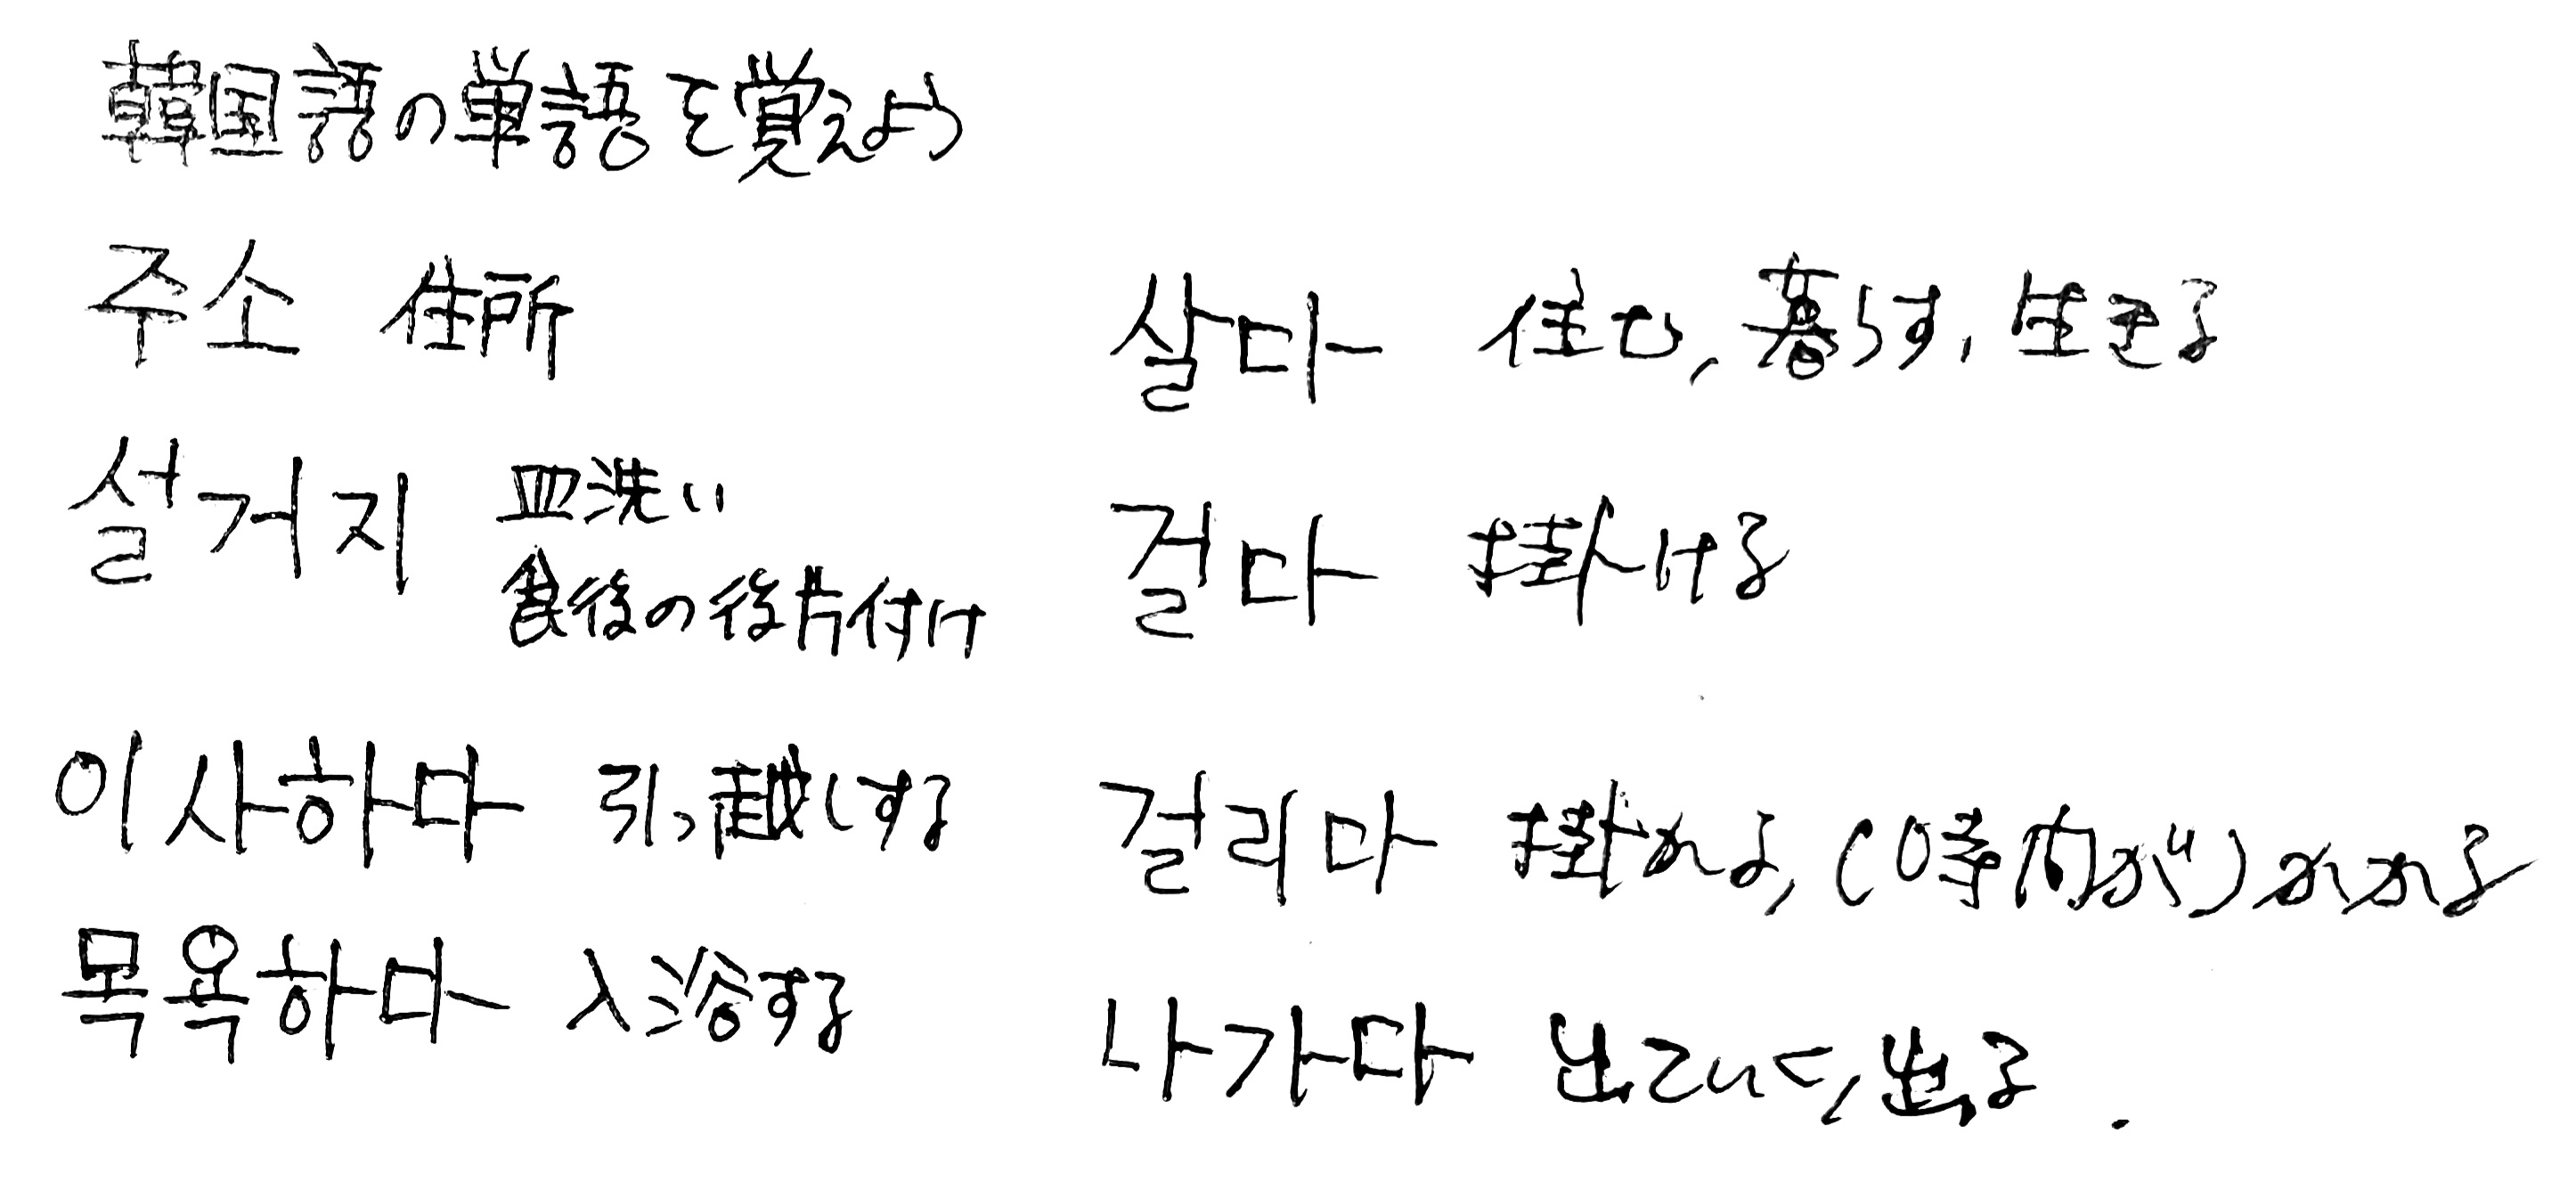 韓国語の単語を覚えよう
주소 住所
설거지 皿洗い
食後の後片付け
이사하다 引っ越しする
목욕하다 入浴する
살다 住む, 暮らす, 生きる
걸다 掛ける
걸리다 掛かる, (時間が)かかる
나가다 出ていく, 出る.